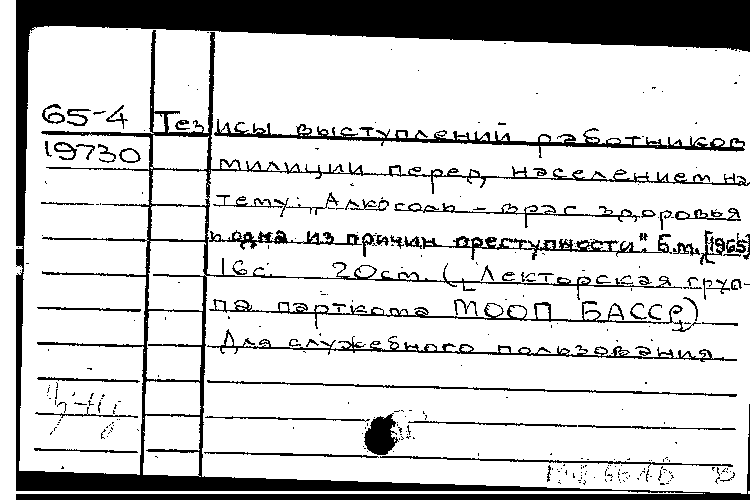 65-4 Тезисы выступлений работников
19730 милиции перед населением на
тему: „Алкоголь – враг здоровья
и одна из причин преступности". Б.м., [1965]
16с. 20см. (Лекторская груп-
па парткома МООП БАССР)
Для служебного пользования.